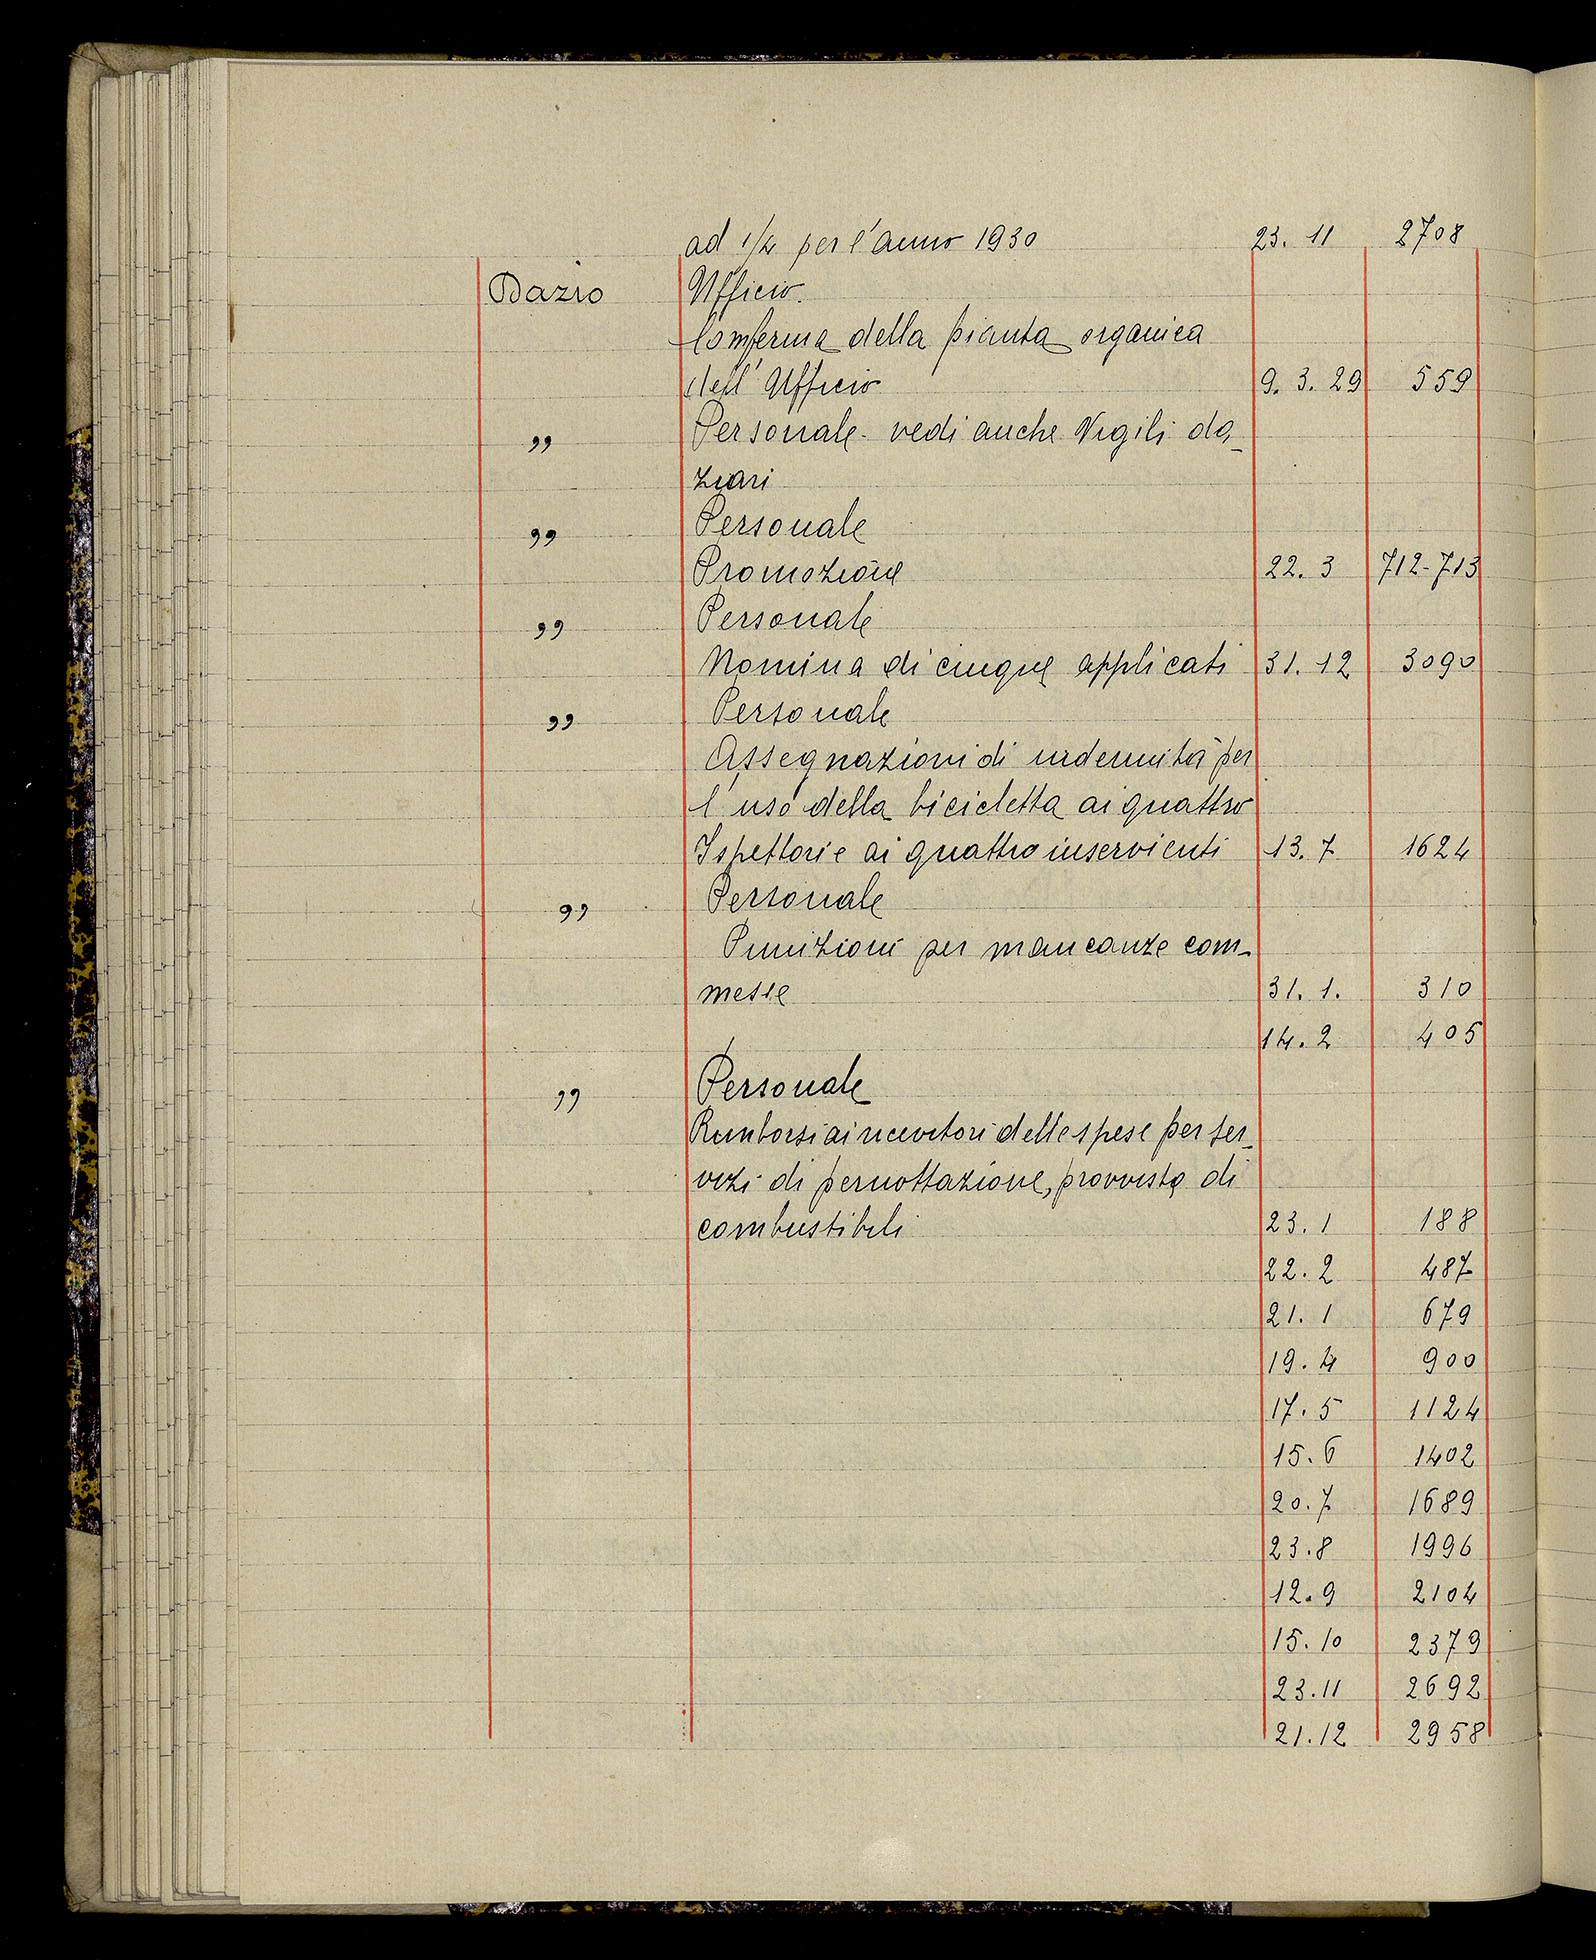 ad 1/4 per l'anno 1930 23. 11 2708
Dazio Ufficio.
Conferma della pianta organica
dell' Ufficio 9. 3. 29 559
„ Personale - vedi anche Vigili da-
ziari
„ Personale
Promozione 22. 3 712-713
„ Personale
Nomina di cinque applicati 31. 12 3090
„ Personale
Assegnazioni di indennità per
l'uso della bicicletta ai quattro
Ispettori e ai quattro inservienti 13. 7 1624
„ Personale
Punizioni per mancanze com-
messe 31. 1. 310
14. 2 405
„ Personale
Rimborsi ai ricevitori delle spese per ser-
vizi di pernottazione, provvista di
combustibili 23. 1 188
22. 2 487
21. 1 679
19. 4 900
17. 5 1124
15. 6 1402
20. 7 1689
23. 8 1996
12. 9 2104
15. 10 2379
23. 11 2692
21. 12 2958